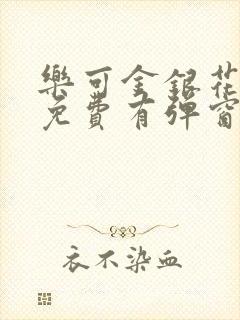 樂可金銀花
免費有彈窗
衣不染血